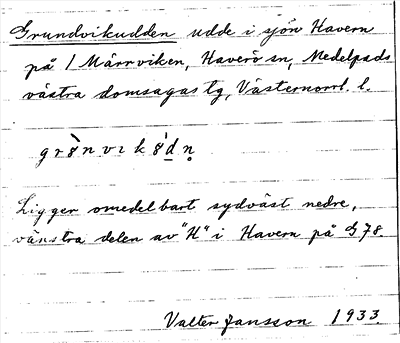 Grundvikudden udde i sjön Havern
på / Märrviken, Haverö sn, Medelpads
västra domsagas tg, Västernorrl. l.
Ligger omedelbart sydväst nedre,
vänstra delen av "H" i Havern på G78.
Valter Jansson 1933.